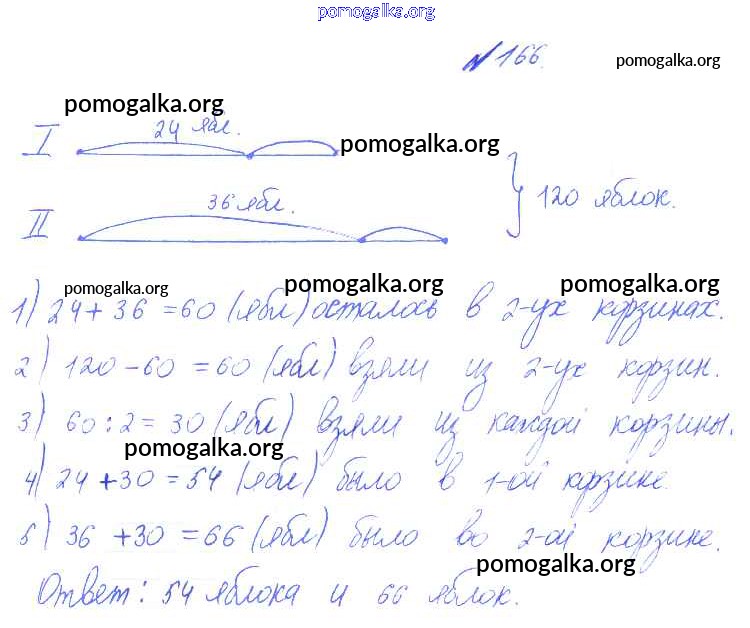 pomogalka.org
№166. pomogalka.org
pomogalka.org
I 24 ябл. pomogalka.org
II 36 ябл. } 120 яблок.
pomogalka.org pomogalka.org pomogalka.org
1) 24 + 36 = 60 (ябл) осталось в 2-ух корзинах.
2) 120 - 60 = 60 (ябл) взяли из 2-ух корзин.
3) 60 : 2 = 30 (ябл) взяли из каждой корзины.
pomogalka.org
4) 24 + 30 = 54 (ябл) было в 1-ой корзине.
5) 36 + 30 = 66 (ябл) было во 2-ой корзине.
pomogalka.org
Ответ: 54 яблока и 66 яблок.